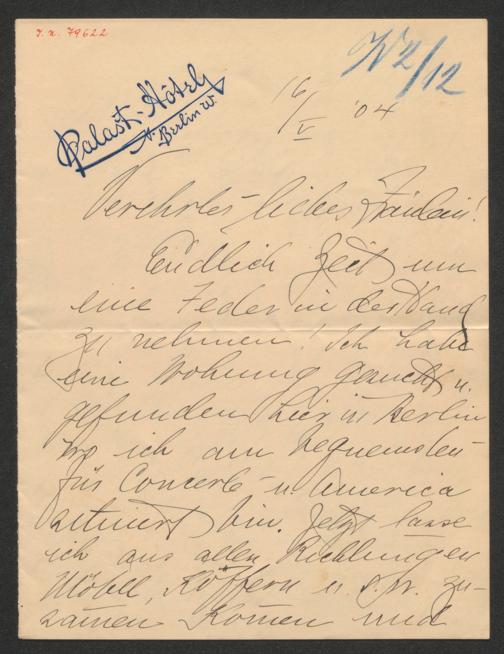 I. N. 79622
W2/12
Palast-Hôtel
Berlin W.
16/V '04
Verehrtes liebes Fräulein!
Endlich Zeit um
eine Feder in der Hand
zu nehmen! Ich habe
eine Wohnung gesucht u.
gefunden hier in Berlin
wo ich am bequemsten
für Concerte u. America
situiert bin. Jetzt lasse
ich aus allen Richtungen
Möbel, Köffern u. s. w. zu-
samen komen und